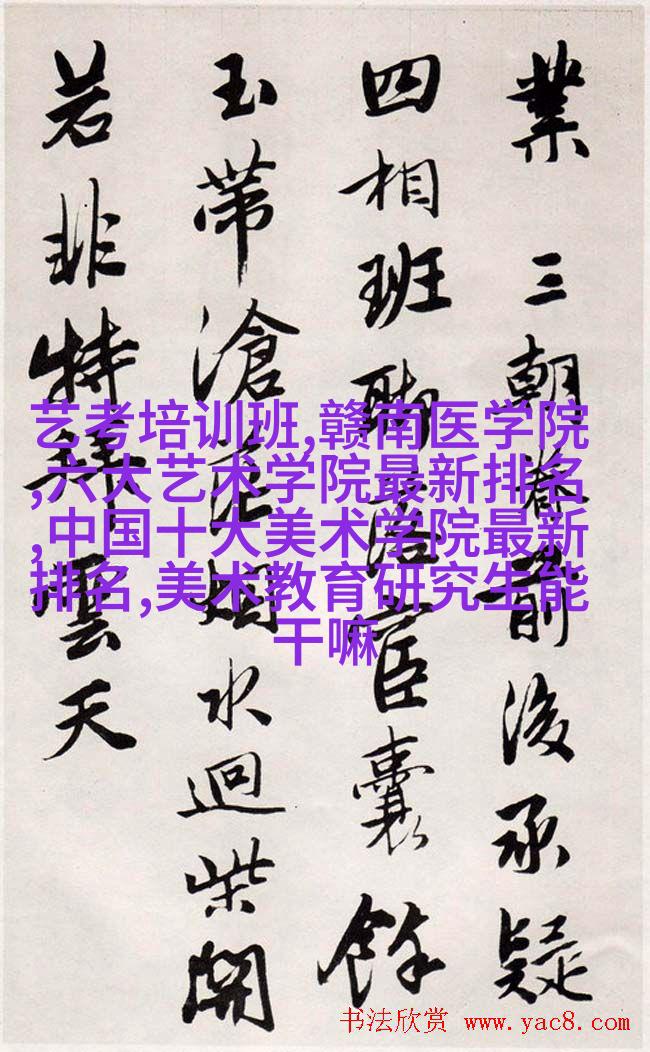 業 三朝前後承疑
四相班聯囊餘
玉帶滄烟水迴柴關
若非特拜雲天
艺考培训班,赣南医学院
,六大艺术学院最新排名
,中国十大美术学院最新
排名,美术教育研究生能
干嘛
书法欣赏 www.yac8.com